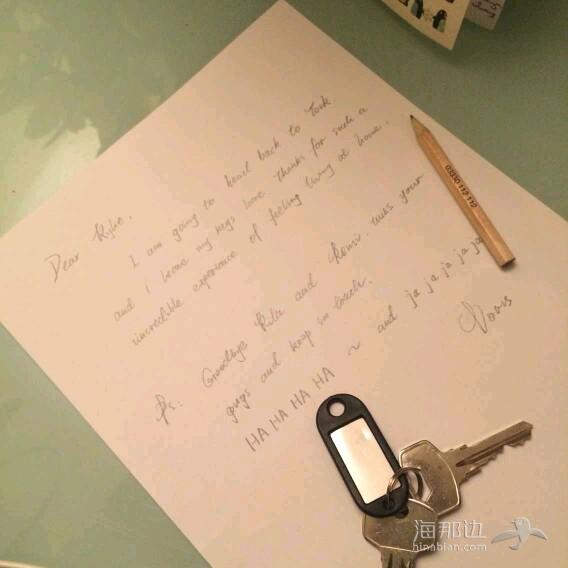 Dear Kyho,
I am going to head back to York.
and I leave my keys here. Thanks for such a
incredible experience of feeling living at home.
Ps: Goodbye Rila and . miss your
guys and keep in touch.
HA HA HA HA ~ and ja ja ja ja ja
Doris
03330 112 112
海那边
hinabian.com